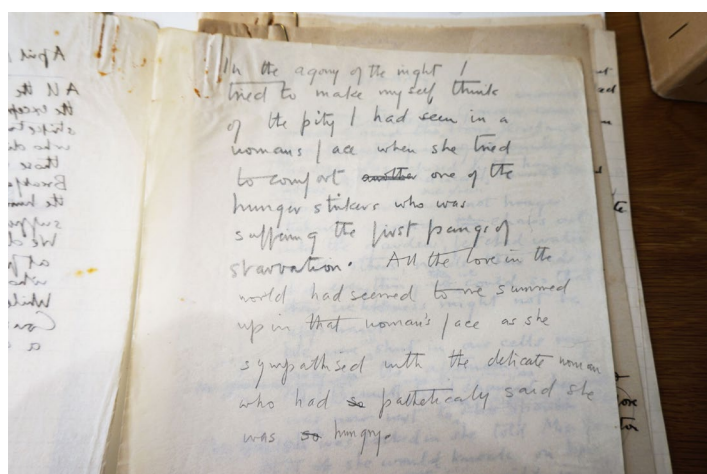 In the agony of the night I
tried to make myself think
of the pity I had seen in a
womans face when she tried
to comfort another one of the
hunger strikers who was
suffering the first pangs of
starvation. All the love in the
world had seemed to me summed
up in that woman's face as she
sympathised with the delicate woman
who had so pathetically said she
was so hungry.